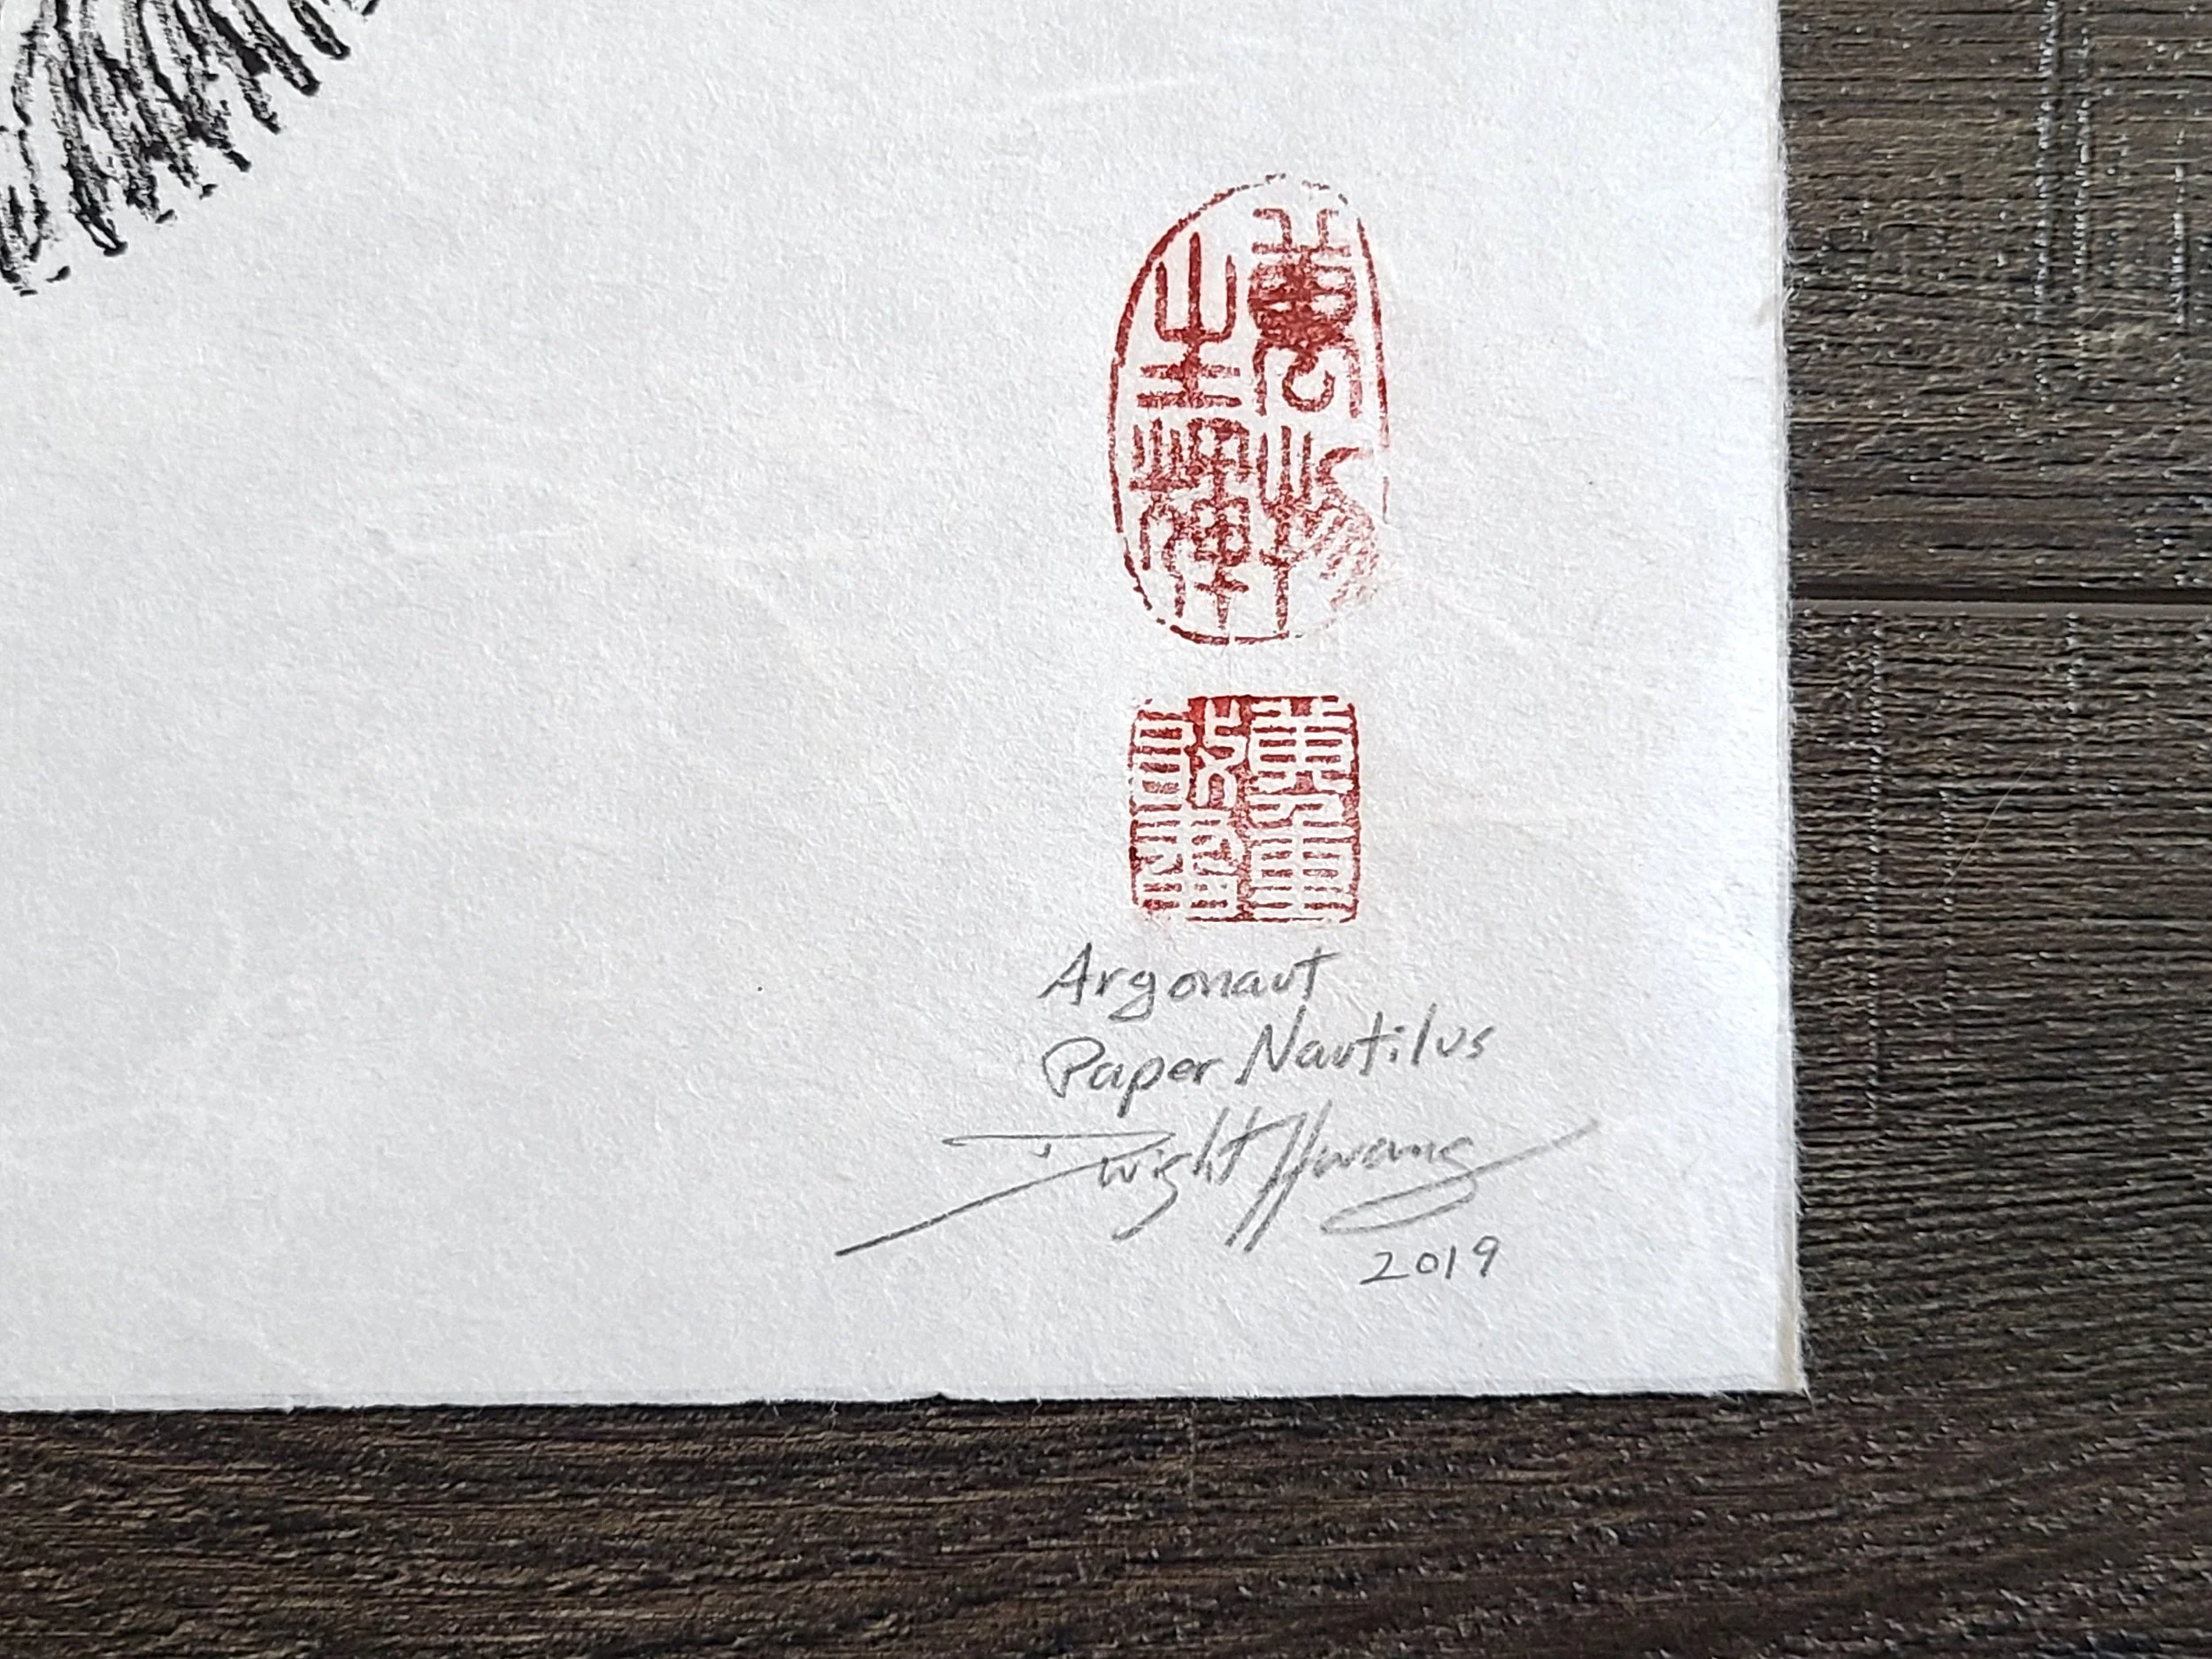 萬物
生輝
Argonaut
Paper Nautilus
Dwight Hwang
2019